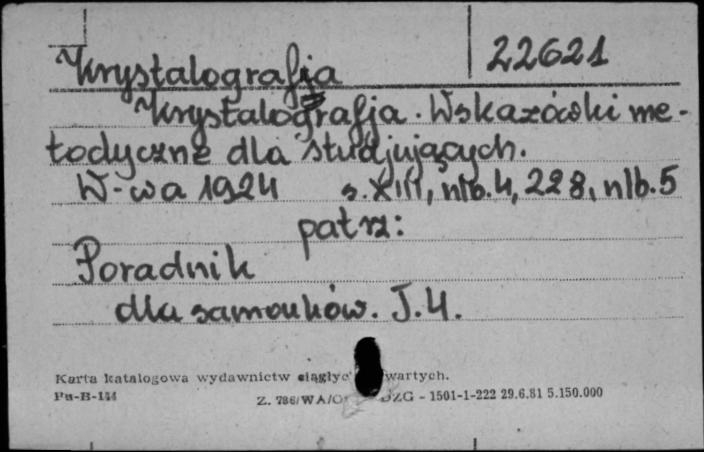 22621
Krystalografja
Krystalografja. Wskazówki me-
todyczne dla studjujących.
W-wa 1924 s. XIII, nlb. 4, 228, nlb. 5
patrz:
Poradnik
dla samouków. T. 4.
Karta katalogowa wydawnictw
Pu-B-144 Z. 786/WA/ - 1501-1-222 29.6.81 5.150.000